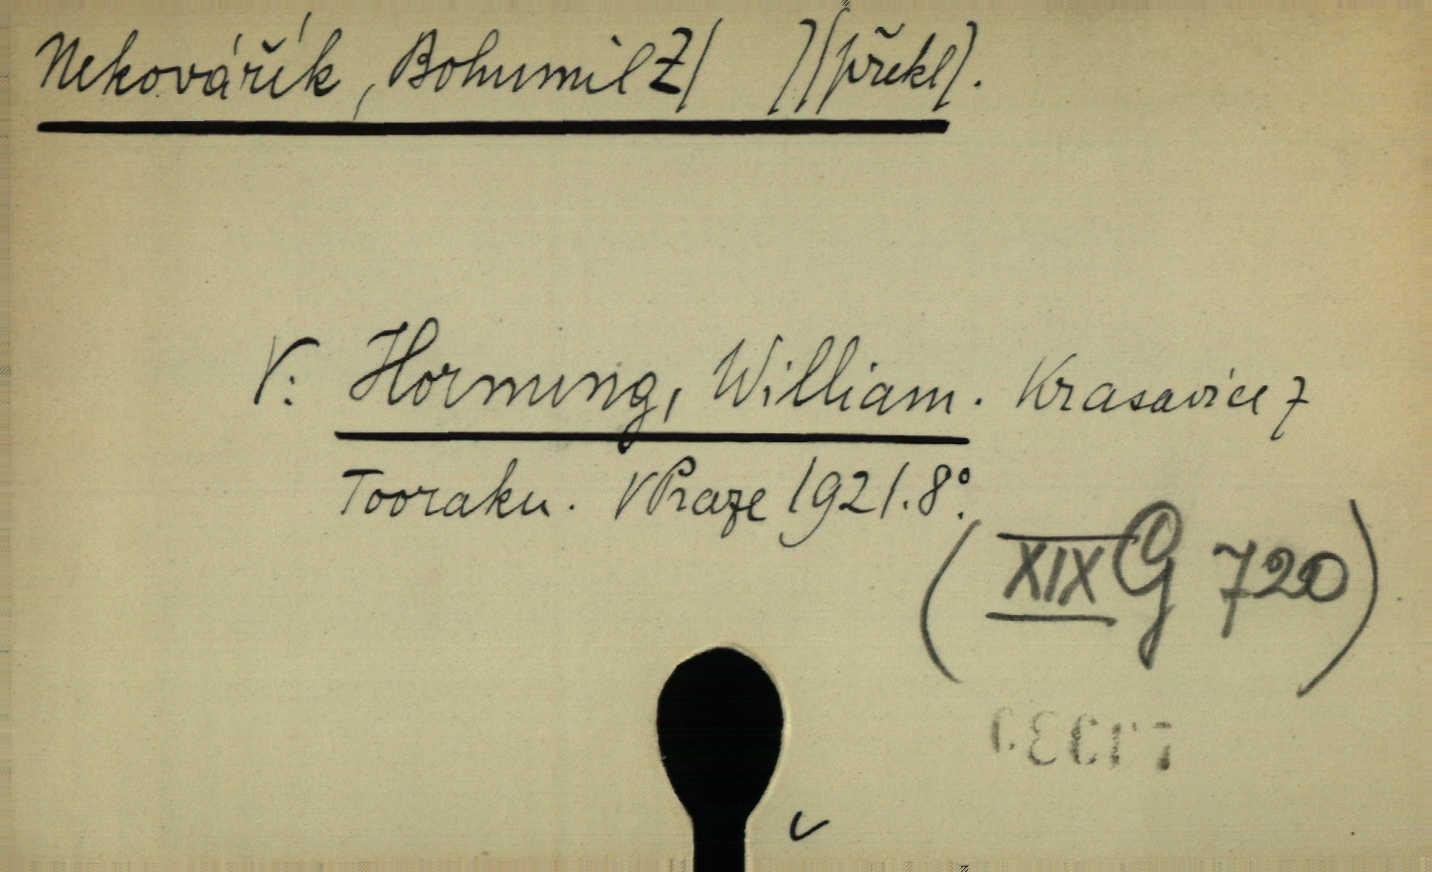 Nekovářík, Bohumil Z/ ](překl).
V: Hornung, William. Krasavice z
Tooraku. V Praze 1921. 8°.
(XIX G 720)